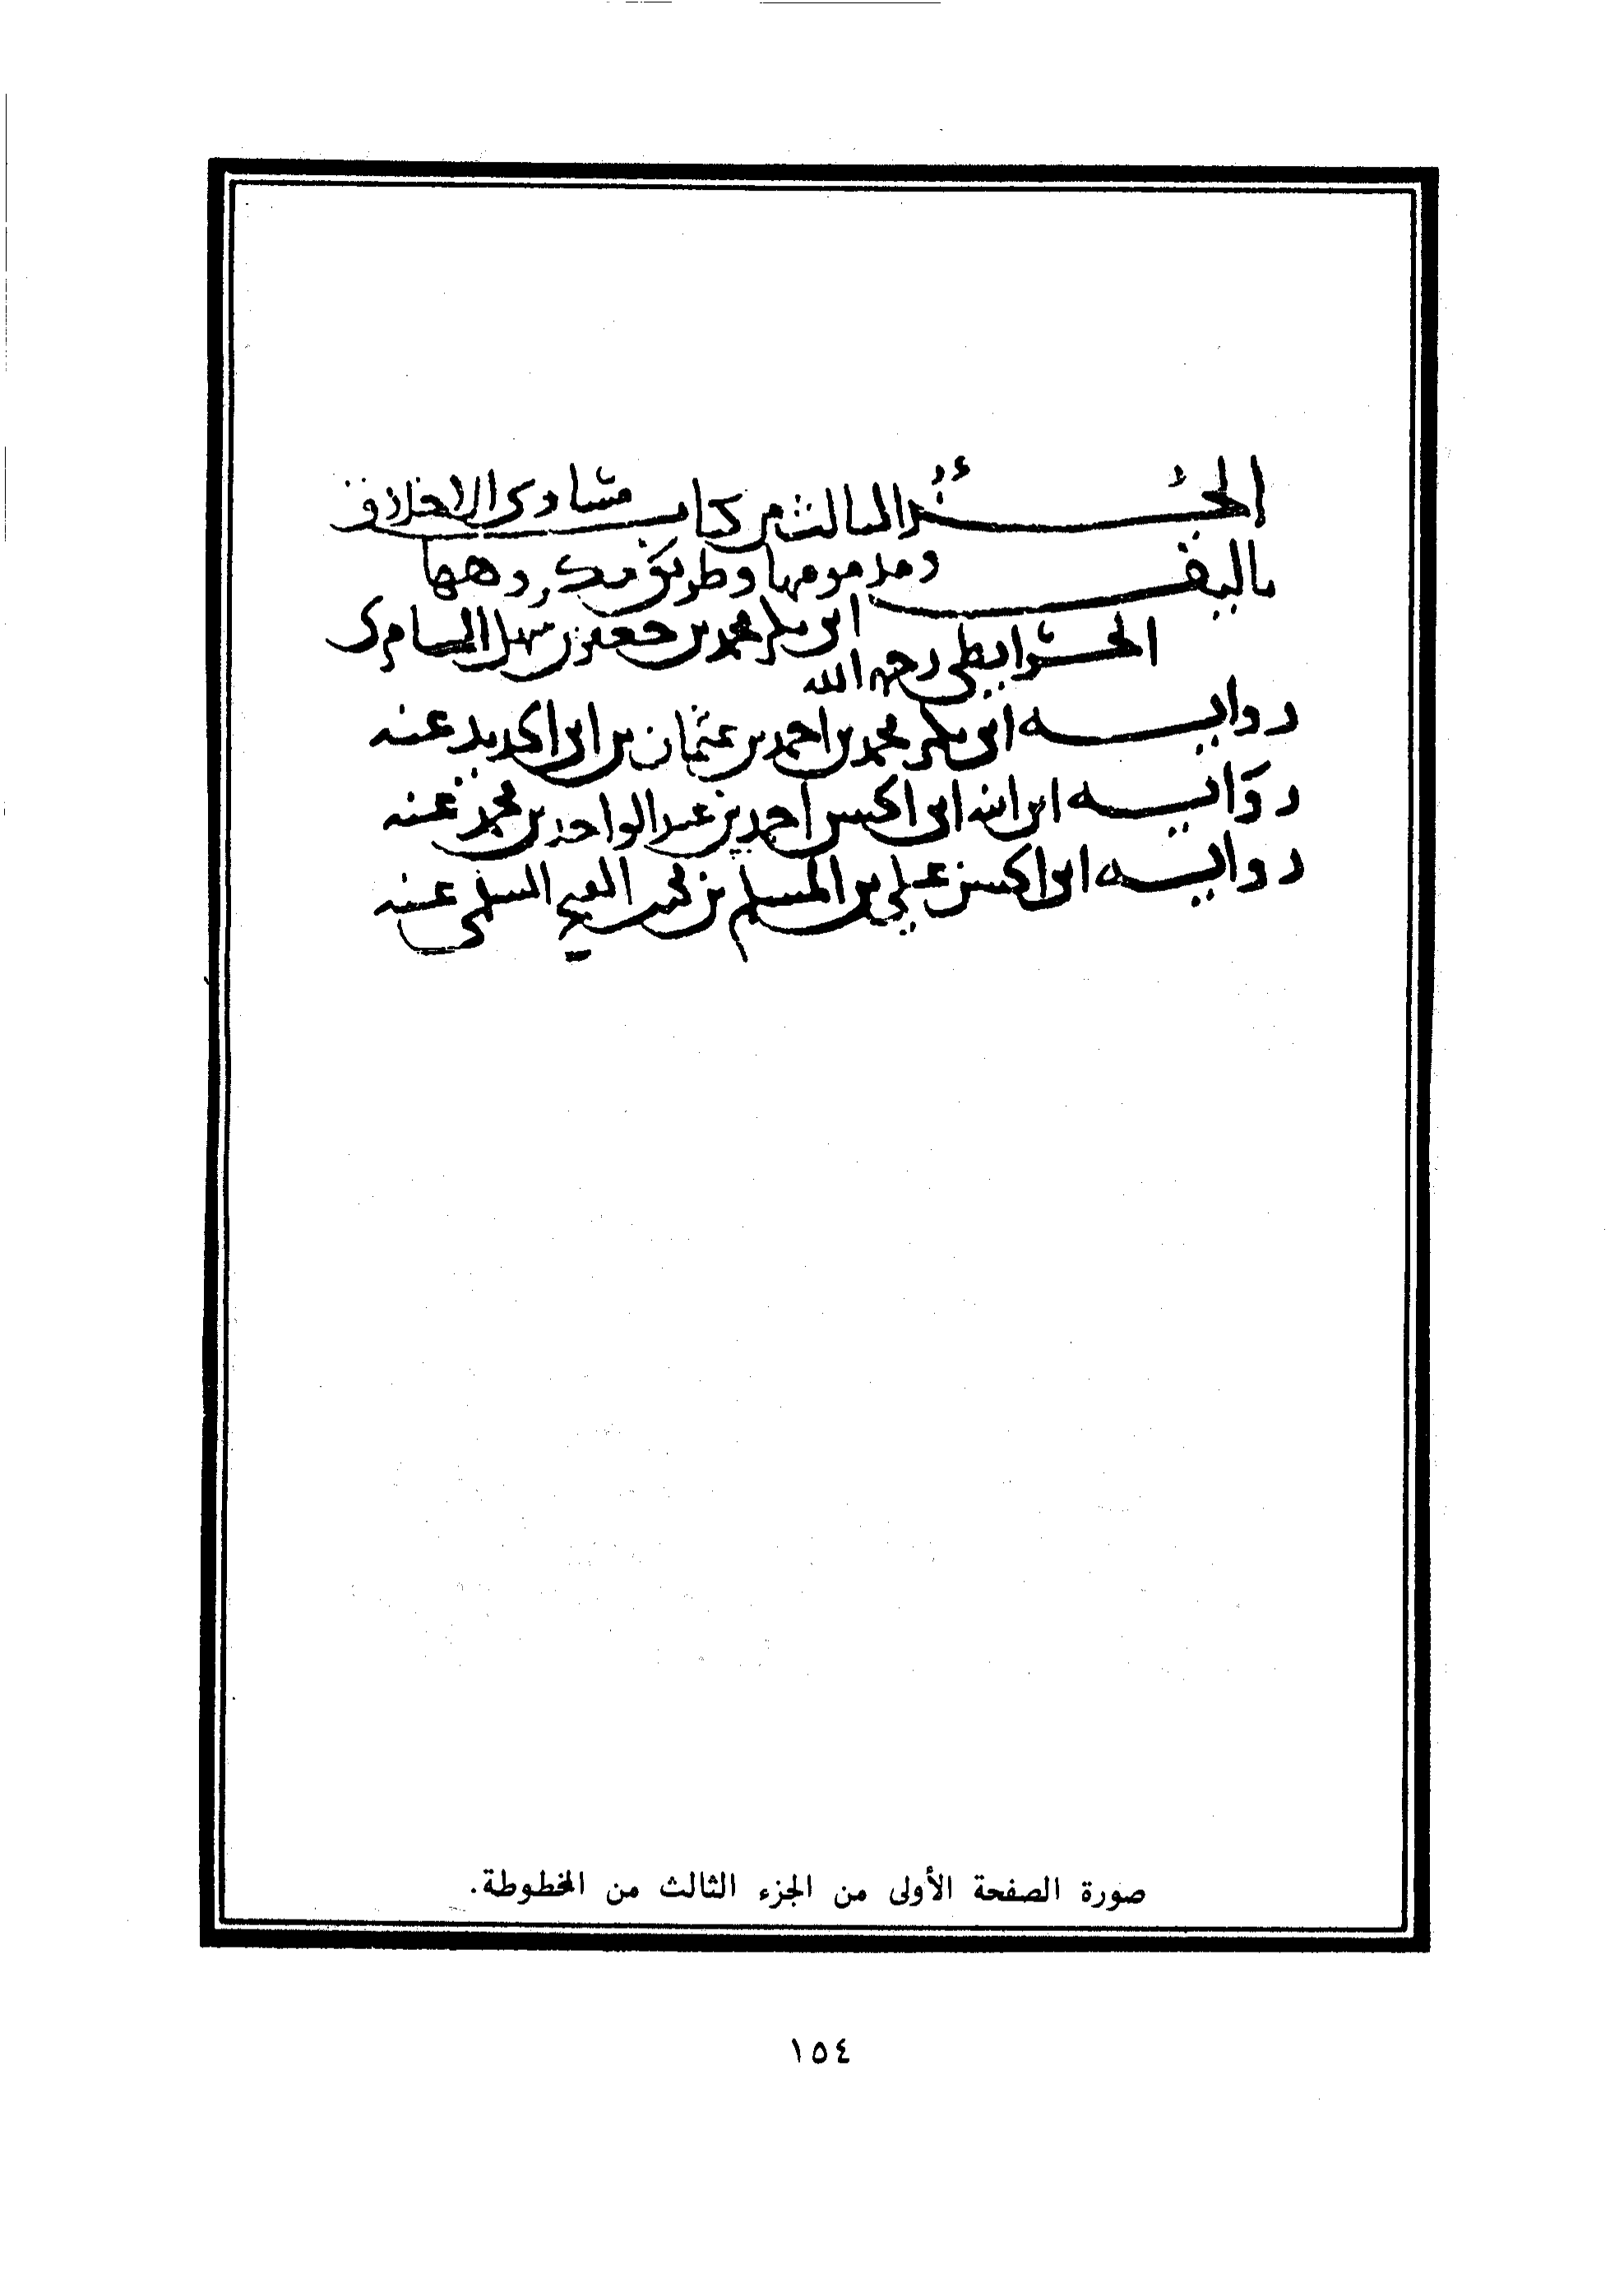 الجزء الثالث من كتاب مساوئ الاخلاق
تاليف ومذمومها وطريق مكروهها
ابي بكر محمد بن جعفر بن سهل السامري
الخرايطي رحمه الله
رواية ابي بكر محمد بن احمد بن عثمان بن ابي الحديد عنه
رواية ابن ابنه ابي الحسن احمد بن عبد الواحد بن محمد عنه
رواية ابي الحسن علي بن المسلم بن محمد الفقيه السلمي عنه
صورة الصفحة الأولى من الجزء الثالث من المخطوطة.
١٥٤